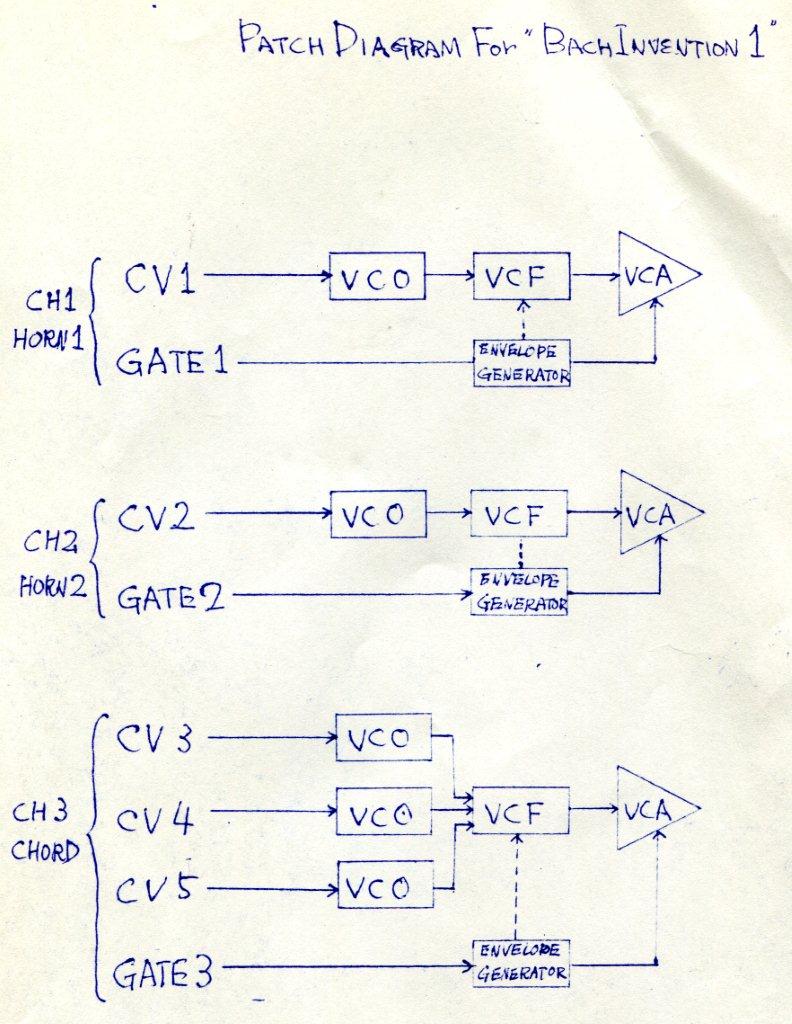 PATCH DIAGRAM FOR "BACH INVENTION 1"
CH1
HORN1
CV1
VCO
VCF
VCA
GATE1
ENVELOPE
GENERATOR
CH2
HORN2
CV2
VCO
VCF
VCA
GATE2
ENVELOPE
GENERATOR
CH3
CHORD
CV3
VCO
CV4
VCO
VCF
VCA
CV5
VCO
GATE3
ENVELOPE
GENERATOR